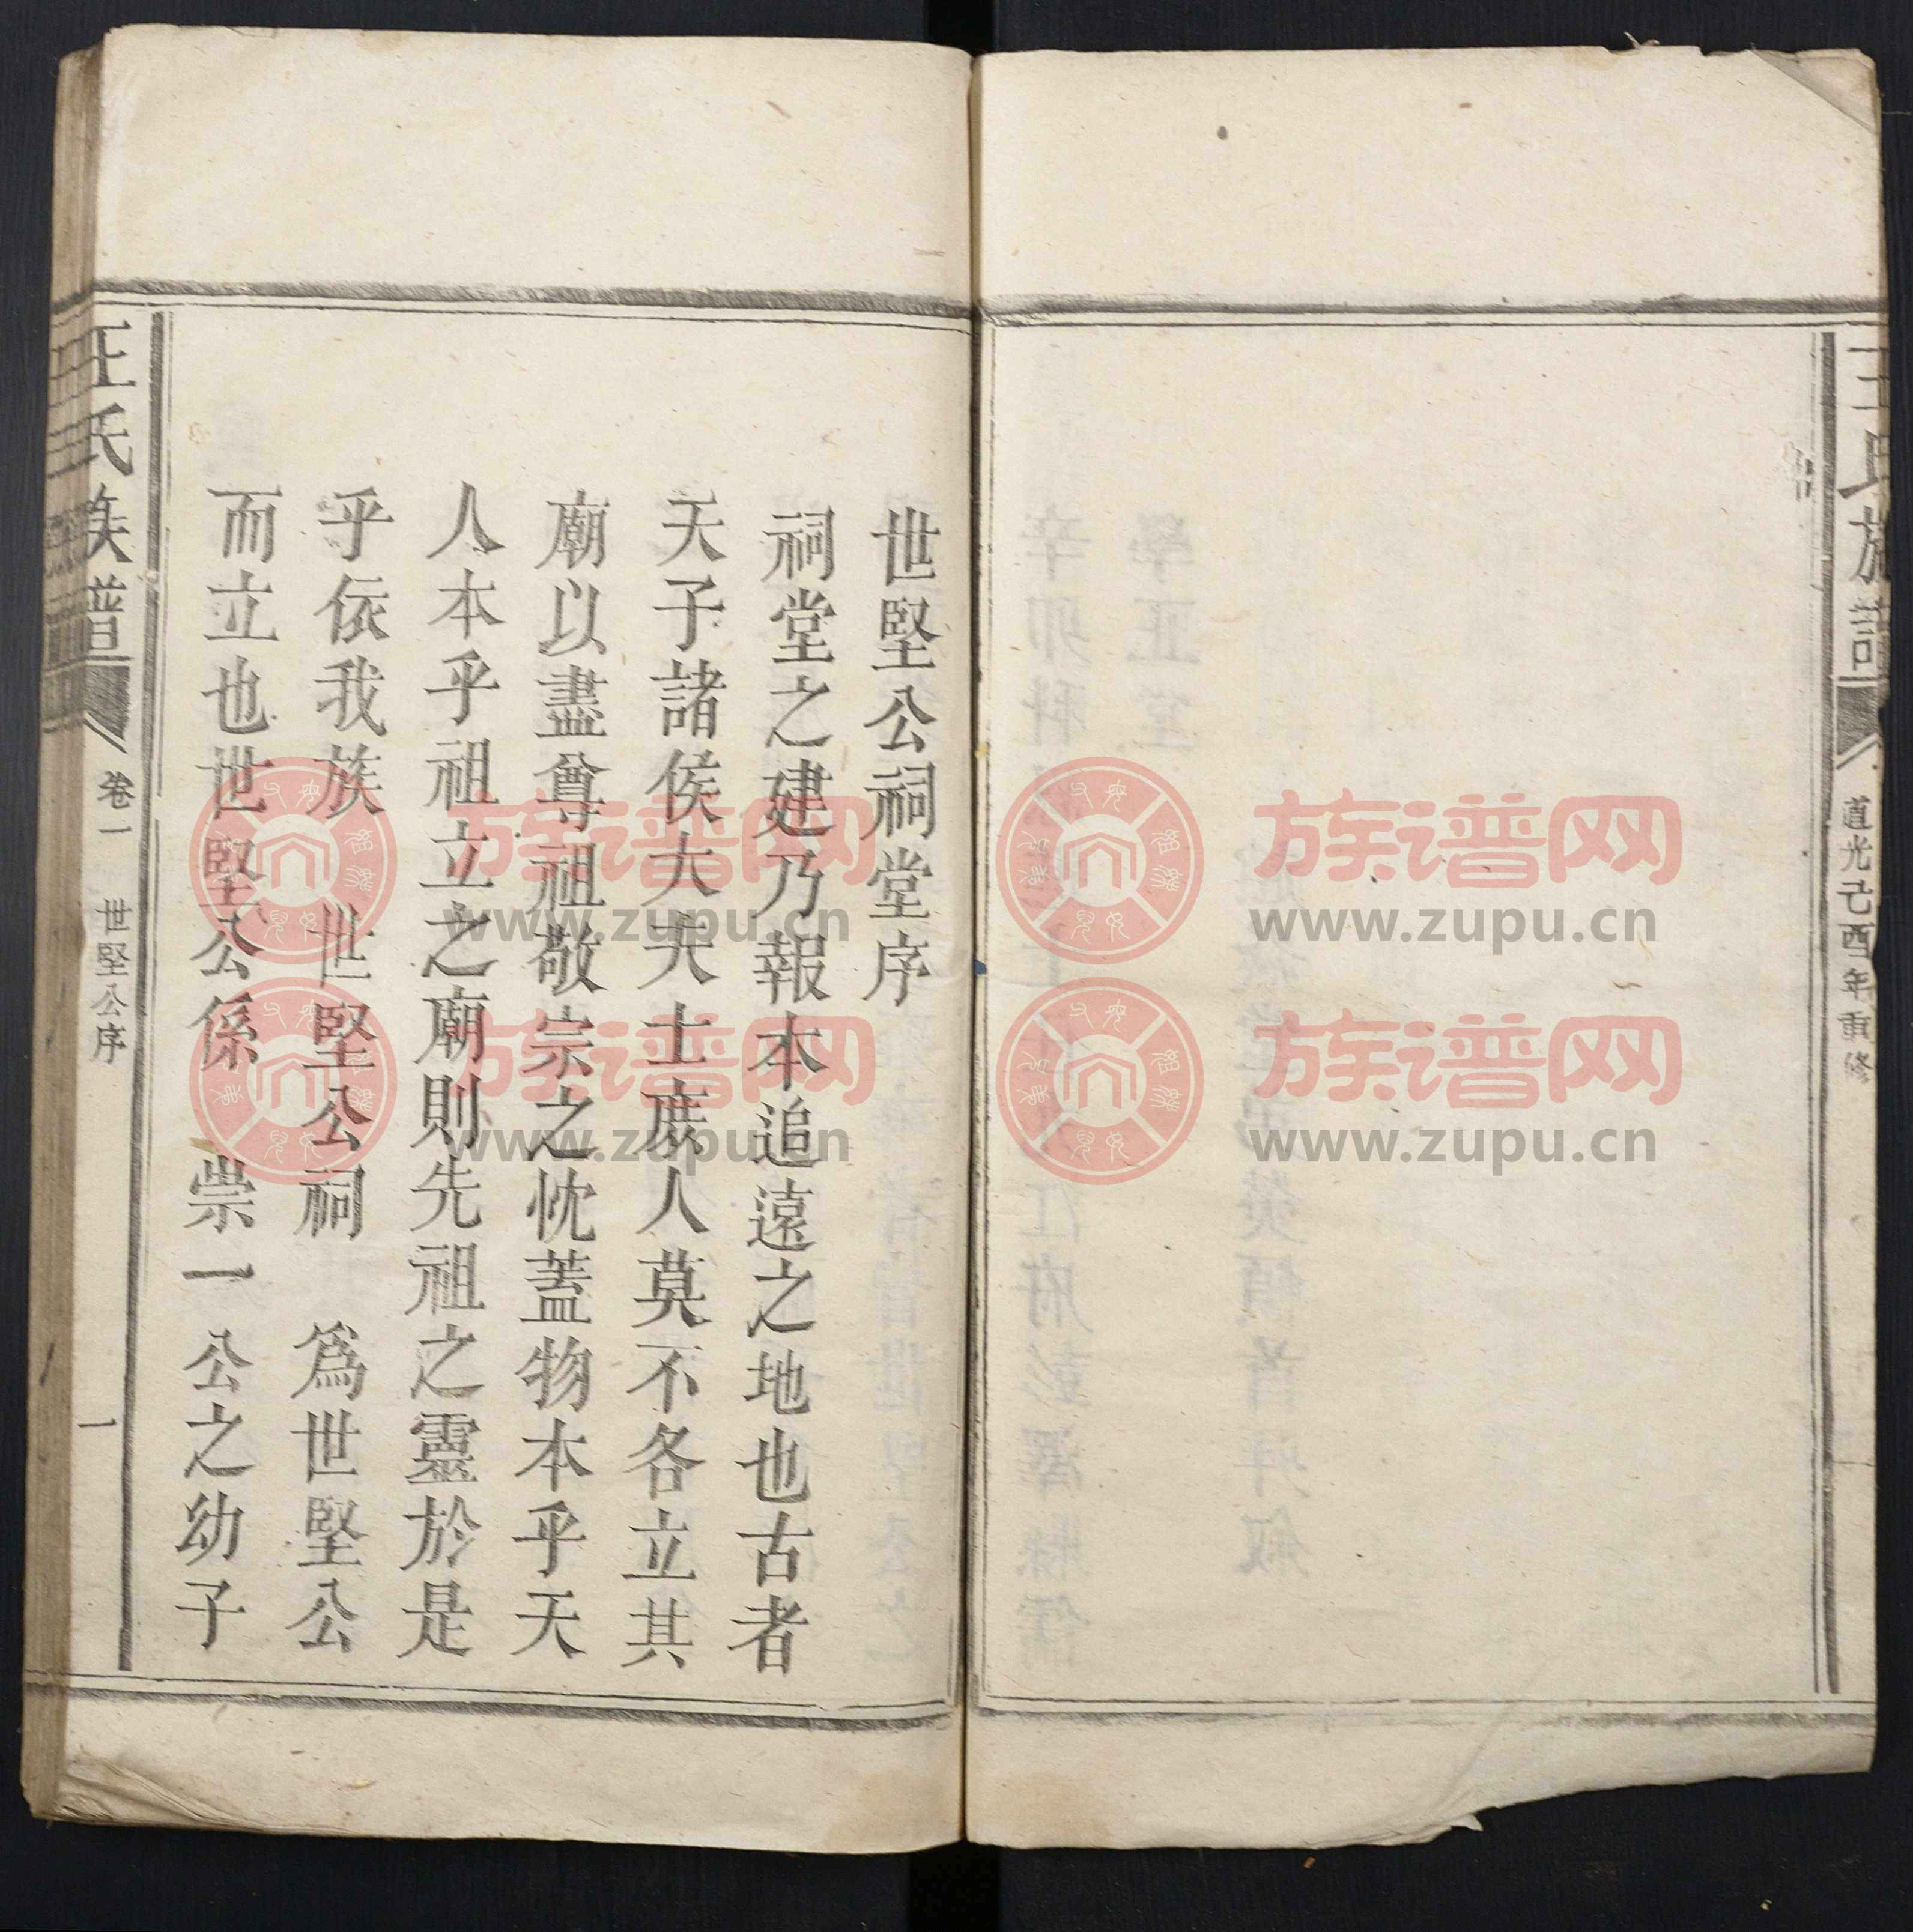 王氏族譜
道光己酉年重修
世堅公祠堂序
祠堂之建乃報本追遠之地也古者
天子諸侯大夫士庶人莫不各立其
廟以盡尊祖敬宗之忱蓋物本乎天
人本乎祖立之廟則先祖之靈於是
乎依我族 世堅公祠 爲世堅公
而立也世堅公係 崇一公之幼子
王氏族譜
卷一 世堅公序 一
族谱网
www.zupu.cn
族谱网
www.zupu.cn
族谱网
www.zupu.cn
族谱网
www.zupu.cn